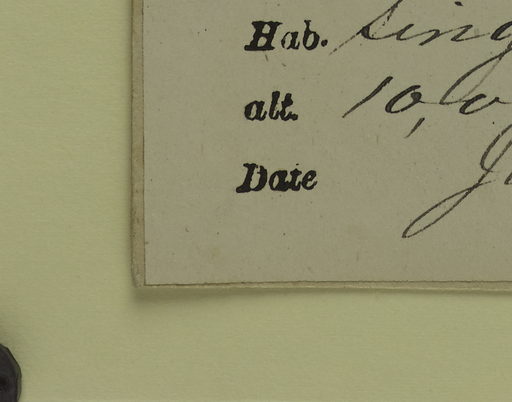 Hab. Sing
alt. 10,0
Date Ju